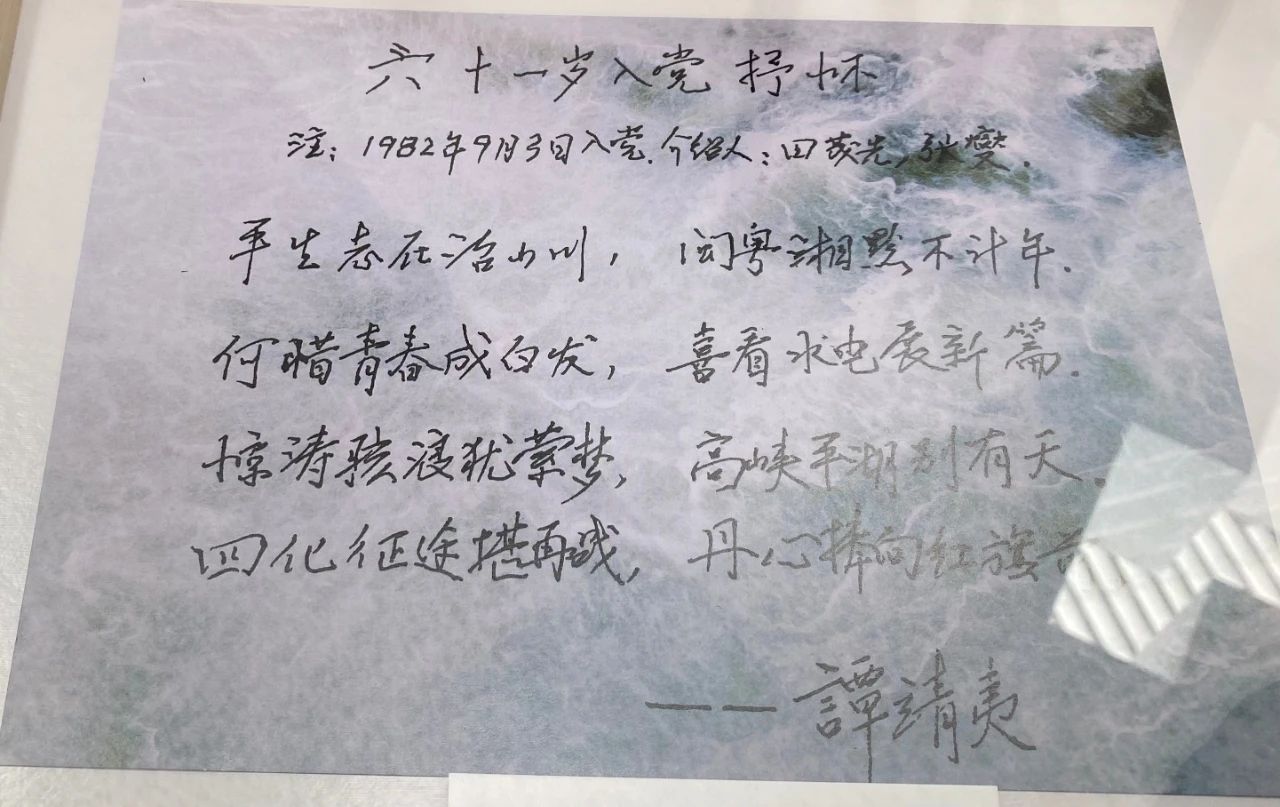 六十一岁入党抒怀
注：1982年9月3日入党.介绍人：田茂光,张燮.
平生志在治山川，闽粤湘黔不计年.
何腊青春成白发，喜看水电展新篇.
惊涛骇浪犹萦梦，高峡平湖别有天.
四化征途堪再战，丹心捧向红旗
——譚靖夷